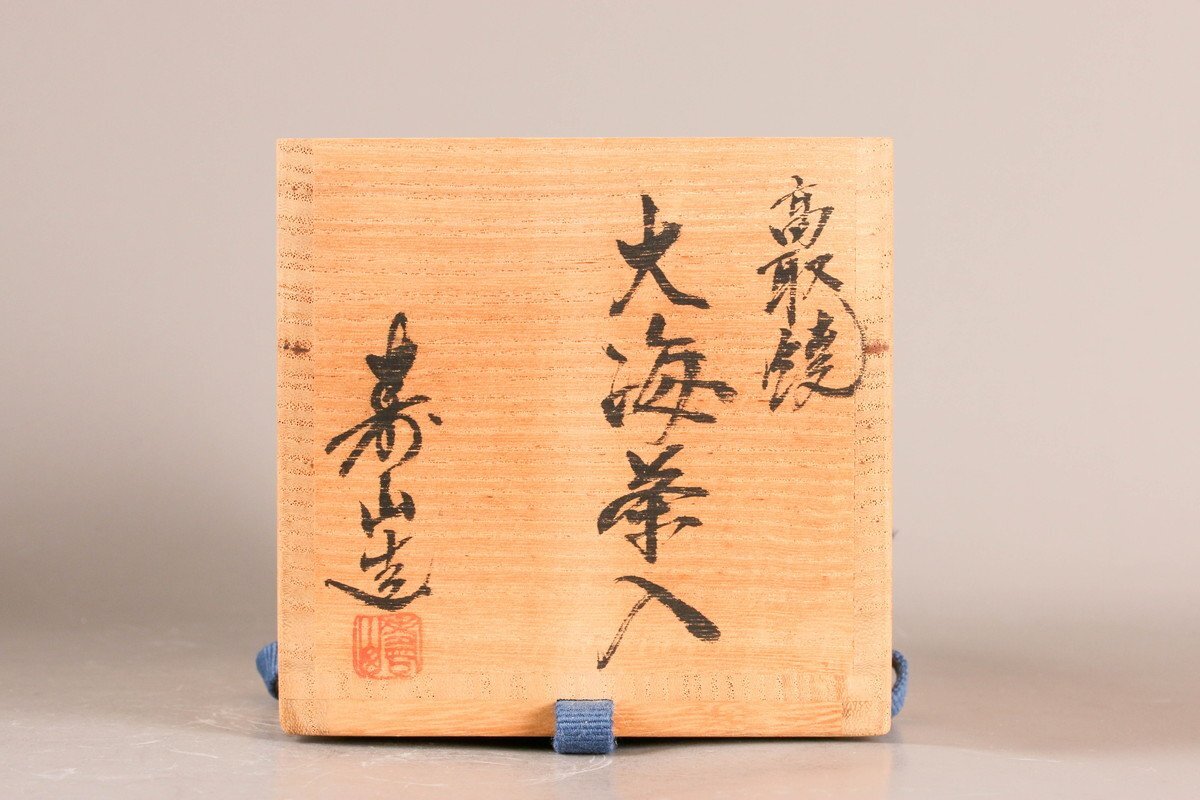 高取焼
大海茶入
寿山造